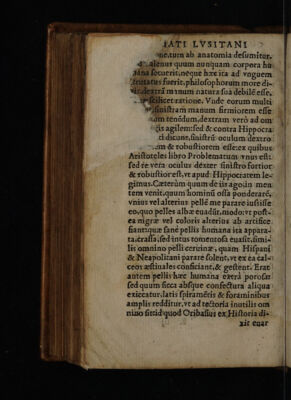 IATI LVSITANI
ne, tum ab anatomia desumitur.
alenus quum nunquam corpora hu
ana secuerit, neque hæc ita ad vnguem
rutatus fuerit, philosophorum more di
dextrã manum natura sua debilē esse,
scilicet ratione. Vnde eorum multi
sinistram manum firmiorem esse
tenẽdum, dextram verò ad om
gis agilem: sed & contra Hippocra
ti dicunt, sinistrũ oculum dextro
em & robustiorem esse: ex quibus
Aristoteles libro Problematum vnus est:
sed re vera oculus dexter sinistro fortior
& robustior est, vt apud Hippocratem le-
gimus. Cæterùm quum de iis agoũ in men
tem venit, quum hominũ ossa ponderarẽ,
vnius vel alterius pellẽ me parare iussisse
eo, quo pelles albæ euadũt, modo: vt post-
ea nigræ vel coloris alterius ab artifice
fiant: quæ sanè pellis humana ita appara-
ta, crassa, sed intus tomentosa euasit, simi-
lis omnino pelli ceruinæ, quam Hispani
& Neapolitani parare solent, vt ex ea cal-
ceos æstiuales conficiant, & gestent. Erat
autem pellis hæc humana exerà porosa:
sed quum sicca absque confectura aliqua
exiccatur, latis spiramẽtis & foraminibus
amplis redditur, vt ad tectoria inutilis om
nino sit: id quod Oribasius ex Historia di-
xit euae